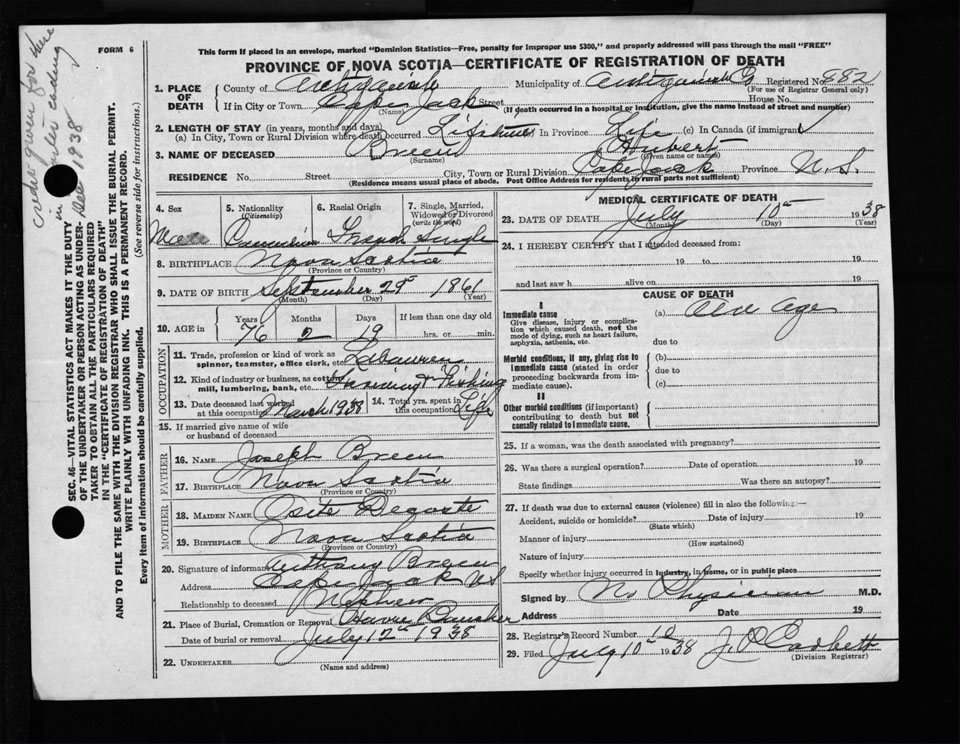 FORM 6
This form if placed in an envelope, marked "Dominion Statistics—Free, penalty for improper use $300," and properly addressed will pass through the mail "FREE"
PROVINCE OF NOVA SCOTIA—CERTIFICATE OF REGISTRATION OF DEATH
1. PLACE OF DEATH
County of Antigonish Municipality of Antigonish Co Registered No. 882
(For use of Registrar General only)
If in City or Town Cape Jack Street House No.
(Name) (If death occurred in a hospital or institution, give the name instead of street and number)
2. LENGTH OF STAY (in years, months and days)
(a) In City, Town or Rural Division where death occurred Lifetime In Province Life (c) In Canada (if immigrant)
3. NAME OF DECEASED Breen Hubert
(Surname) (Given name or names)
RESIDENCE No. Street City, Town or Rural Division Cape Jack Province N.S.
(Residence means usual place of abode. Post Office Address for residents in rural parts not sufficient)
4. Sex Male
5. Nationality (Citizenship) Canadian
6. Racial Origin
7. Single, Married, Widowed or Divorced (write the word) Single
8. BIRTHPLACE Nova Scotia
(Province or Country)
9. DATE OF BIRTH September 25 1861
(Month) (Day) (Year)
10. AGE in Years Months Days If less than one day old
76 2 19 hrs. or min.
OCCUPATION
11. Trade, profession or kind of work as spinner, teamster, office clerk, etc. Labourer
12. Kind of industry or business, as cotton mill, lumbering, bank, etc. Farming & Fishing
13. Date deceased last worked at this occupation March 1938
14. Total yrs. spent in this occupation Life
15. If married give name of wife or husband of deceased
FATHER
16. NAME Joseph Breen
17. BIRTHPLACE Nova Scotia
(Province or Country)
MOTHER
18. MAIDEN NAME Osite Degaste
19. BIRTHPLACE Nova Scotia
(Province or Country)
20. Signature of informant Anthony Breen
Address Cape Jack NS
Relationship to deceased Nephew
21. Place of Burial, Cremation or Removal Havre Boucher
Date of burial or removal July 12th 1938
22. UNDERTAKER
(Name and address)
MEDICAL CERTIFICATE OF DEATH
23. DATE OF DEATH July 10th 1938
(Month) (Day) (Year)
24. I HEREBY CERTIFY that I attended deceased from:
19 to 19
and last saw h alive on 19
CAUSE OF DEATH
I
Immediate cause
Give disease, injury or complication which caused death, not the mode of dying, such as heart failure, asphyxia, asthenia, etc.
(a) Old age
due to
Morbid conditions, if any, giving rise to immediate cause (stated in order proceeding backwards from immediate cause).
(b)
due to
(c)
II
Other morbid conditions (if important) contributing to death but not causally related to immediate cause.
25. If a woman, was the death associated with pregnancy?
26. Was there a surgical operation? Date of operation 19
State findings Was there an autopsy?
27. If death was due to external causes (violence) fill in also the following:—
Accident, suicide or homicide? Date of injury 19
(State which)
Manner of injury
(How sustained)
Nature of injury
Specify whether injury occurred in industry, in home, or in public place
Signed by No Physician M.D.
Address Date 19
28. Registrar's Record Number 10
29. Filed July 10th 1938 J. D Corbett
(Division Registrar)
SEC. 46—VITAL STATISTICS ACT MAKES IT THE DUTY
OF THE UNDERTAKER OR PERSON ACTING AS UNDER-
TAKER TO OBTAIN ALL THE PARTICULARS REQUIRED
IN THE "CERTIFICATE OF REGISTRATION OF DEATH"
AND TO FILE THE SAME WITH THE DIVISION REGISTRAR WHO SHALL ISSUE THE BURIAL PERMIT.
WRITE PLAINLY WITH UNFADING INK. THIS IS A PERMANENT RECORD.
Every item of information should be carefully supplied. (See reverse side for instructions.)
credit given for there
in ending
Dec 1938